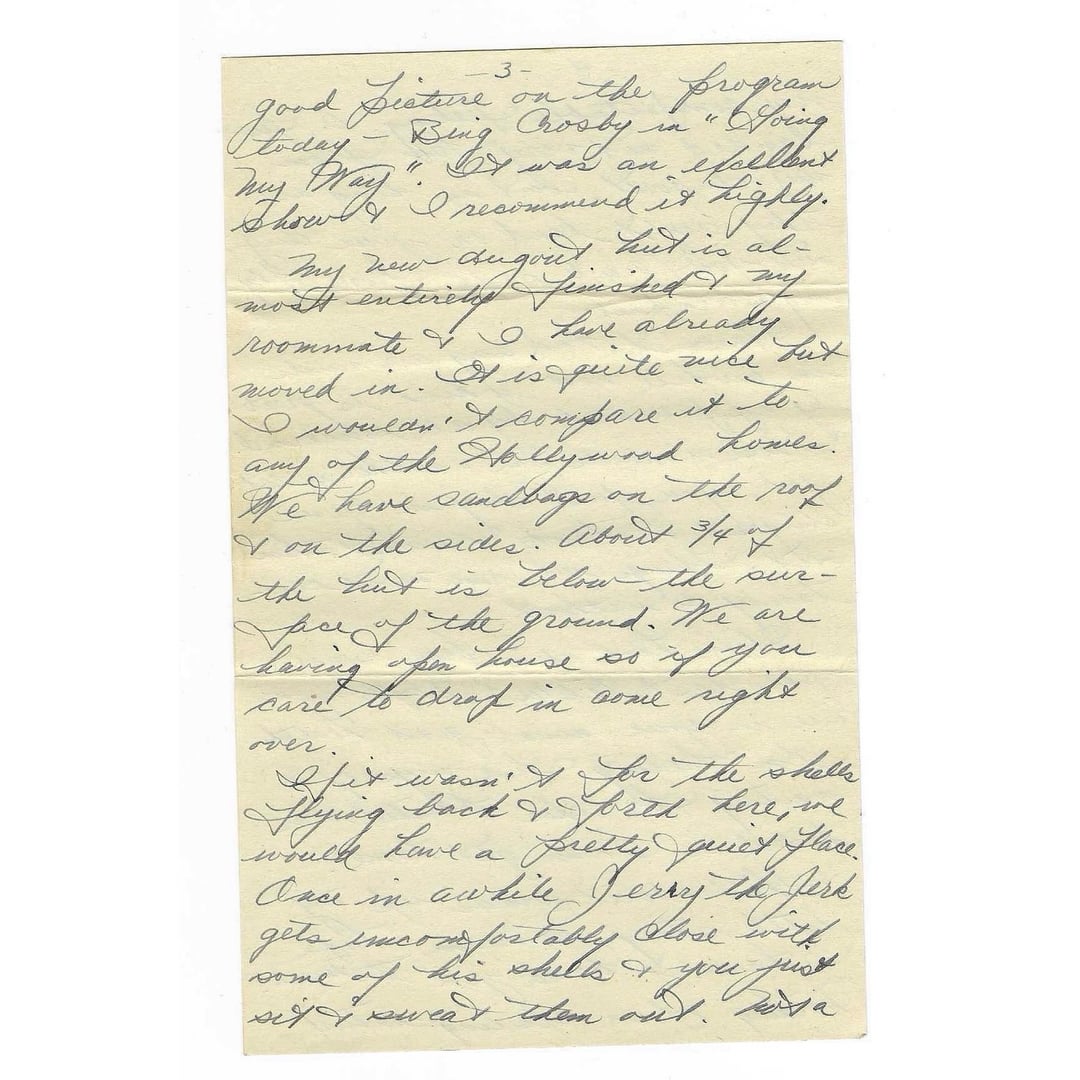 -3-
good picture on the program
today - Bing Crosby in "Going
My Way". It was an excellent
show & I recommend it highly.
My new dugout hut is al-
most entirely finished & my
roommate & I have already
moved in. It is quite nice but
I wouldn't compare it to
any of the Hollywood homes.
We have sandbags on the roof
& on the sides. About 3/4 of
the hut is below the sur-
face of the ground. We are
having open house so if you
care to drop in come right
over.
If it wasn't for the shells
flying back & forth here, we
would have a pretty quiet place.
Once in awhile Jerry the Jerk
gets uncomfortably close with
some of his shells & you just
sit & sweat them out. Not a